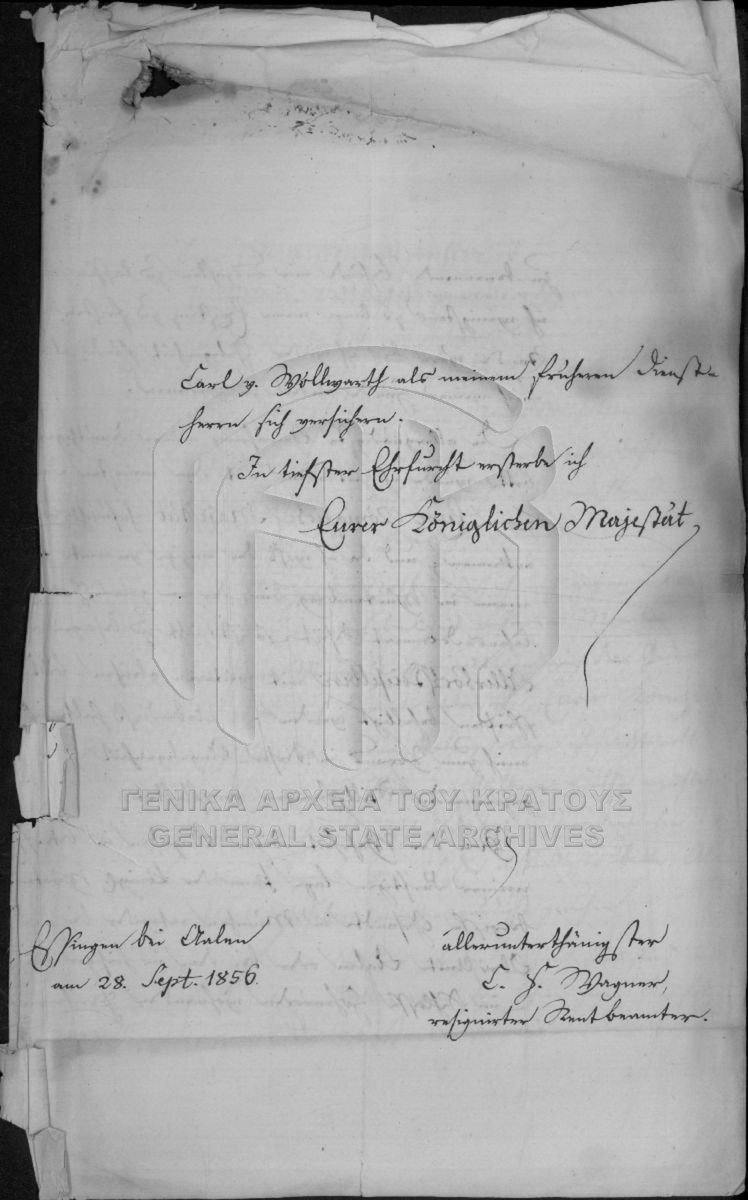 Carl v. Wöllwarth als meinem früheren Dienst-
herrn sich versichern.
In tiefster Ehrfurcht ersterbe ich
Eurer Königlichen Majestät
ΓΕΝΙΚΑ ΑΡΧΕΙΑ ΤΟΥ ΚΡΑΤΟΥΣ
GENERAL STATE ARCHIVES
Essingen bei Aalen
am 28. Sept. 1856.
allerunterthänigster
C. H. Wagner,
resignirter Rentbeamter.